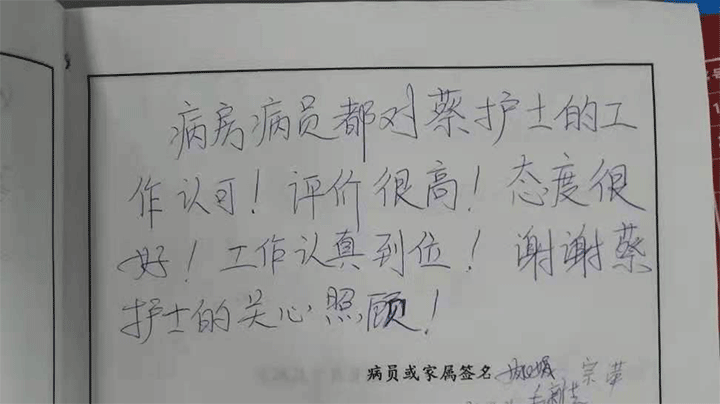 病房病员都对蔡护士的工
作认可！评价很高！态度很
好！工作认真到位！谢谢蔡
护士的关心照顾！
病员或家属签名 宗荣